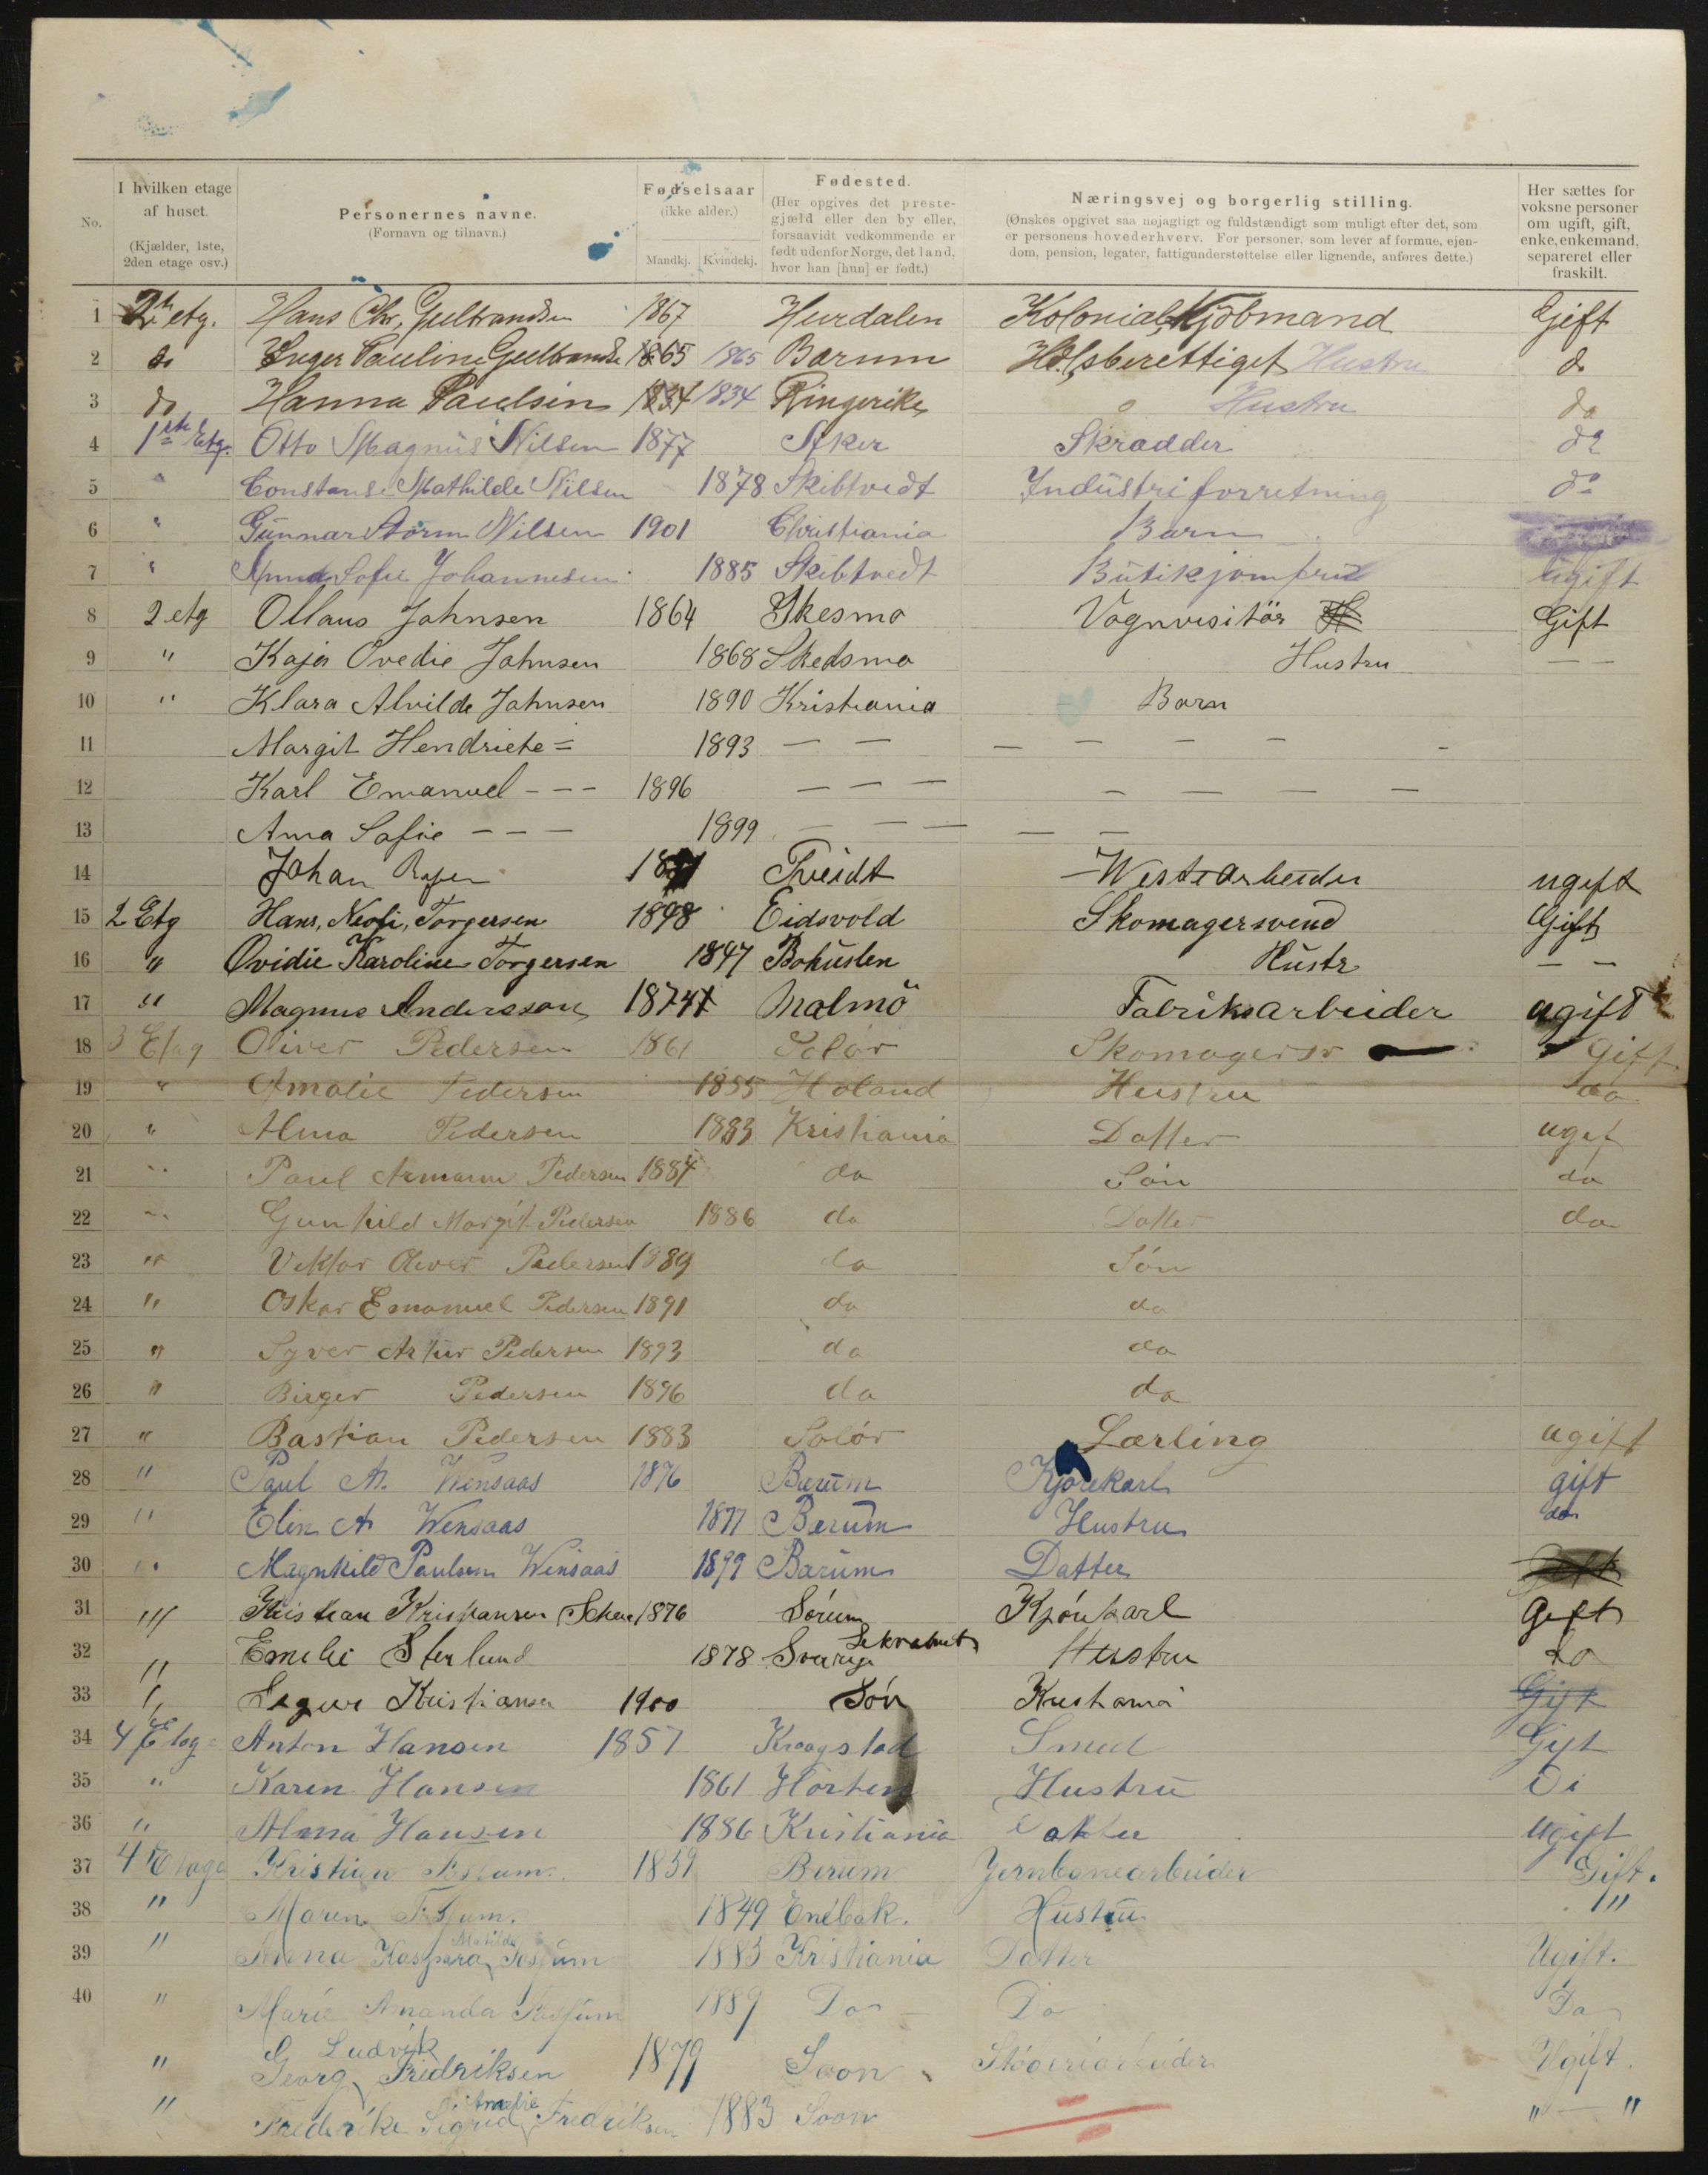 No. I hvilken etage af huset. (Kjælder, 1ste, 2den etage osv.) Personernes navne. (Fornavn og tilnavn.) Fødselsaar (ikke alder.) Mandkj. Kvindekj. Fødested. (Her opgives det prestegjæld eller den by eller, forsaavidt vedkommende er født udenfor Norge, det land, hvor han [hun] er født.) Næringsvej og borgerlig stilling. (Ønskes opgivet saa nøjagtigt og fuldstændigt som muligt efter det, som er personens hovederhverv. For personer, som lever af formue, ejendom, pension, legater, fattigunderstøttelse eller lignende, anføres dette.) Her sættes for voksne personer om ugift, gift, enke, enkemand, separeret eller fraskilt.
1 2 etg. Hans Chr. Gulbrandsen 1867 Hurdalen Kolonial Kjöbmand Gift
2 do Inger Pauline Gulbrands 1865 1865 Barum Hustru do
3 do Hanna Paulsen 1834 1834 Ringerike Hustru do
4 1ste Etg. Otto Magnus Nilsen 1877 Aker Skradder do
5 " Constanse Mathilde Nilsen 1878 Skibtvedt Industriforretning do
6 " Gunnar Storm Nilsen 1901 Christiania Barn
7 " Anna Sofie Johannesen 1885 Skibtvedt Butikjomfru Ugift
8 2 etg Ollaus Johnsen 1864 Skesmo Vognvisitör Gift
9 " Kaja Ovedie Johnsen 1868 Skedsmo Hustru — —
10 " Klara Alvilde Johnsen 1890 Kristiania Barn
11 Margit Hendriete = 1893 — — — — — — —
12 Karl Emanuel - - - 1896 — — — — — — —
13 Anna Sofie - - - 1899 — — — — —
14 Johan 18 Tveidt ugift
15 2 Etg Hans, Torgersen 1898 Eidsvold Skomagersvend Gift
16 " Ovidie Karoline Torgersen 1847 Bohuslen Hustr — —
17 " Magnus Andersson 1874 Malmö Fabriksarbeider ugift
18 3 Etag Oliver Pedersen 1861 Solör Skomagersv Gift
19 " Amalie Pedersen 1855 Höland Hustru do
20 " Alma Pedersen 1883 Kristiania Datter ugif
21 " Paul Armann Pedersen 1884 do Sön do
22 " Gunhild Margit Pedersen 1886 do Datter do
23 " Viktor Oliver Pedersen 1889 do Sön
24 " Oskar Emanuel Pedersen 1891 do do
25 " Syver Artur Pedersen 1893 do do
26 " Birger Pedersen 1896 do do
27 " Bastian Pedersen 1883 Solör Lærling ugift
28 " Paul A. Wensaas 1876 Bærum Kjörekarl gift
29 " Elin A Wensaas 1877 Berum Hustru do
30 " Magnhild Paulsen Wensaas 1899 Bærum Datter
31 " Kristian Kristiansen 1876 Sörum Kjörekarl Gift
32 " Emelie Sterlund 1878 Sverige Hustru do
33 " Kristiansen 1900 Sön Kristiania Gift
34 4 Etage Anton Hansen 1857 Kraagstad Smed Gift
35 " Karen Hansen 1861 Horten Hustru Di
36 " Alma Hansen 1886 Kristiania Datter ugift
37 4 Etage Kristian Fossum. 1859 Berum Jernbanearbeider Gift.
38 " Maren Fossum. 1849 Enebak. Hustru "
39 " Anna Kaspara Matilde Fossum 1883 Kristiania Datter Ugift.
40 " Marie Amanda Fossum 1889 Do — Do Do
" Georg Ludvik Fredriksen 1879 Soon Stöberiarbeider Ugift.
" Frederike Sigrid Amalie Fredriksen 1883 Soon " — "